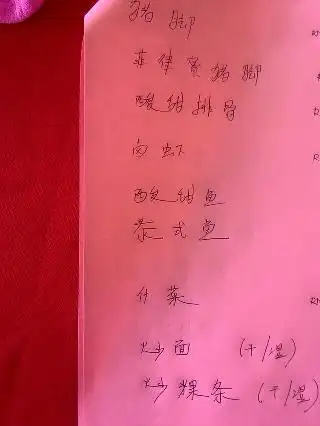 猪脚
菲律宾猪脚
酸甜排骨
肉虾
酸甜鱼
泰式鱼
什菜
炒面 (干/湿)
炒粿条 (干/湿)